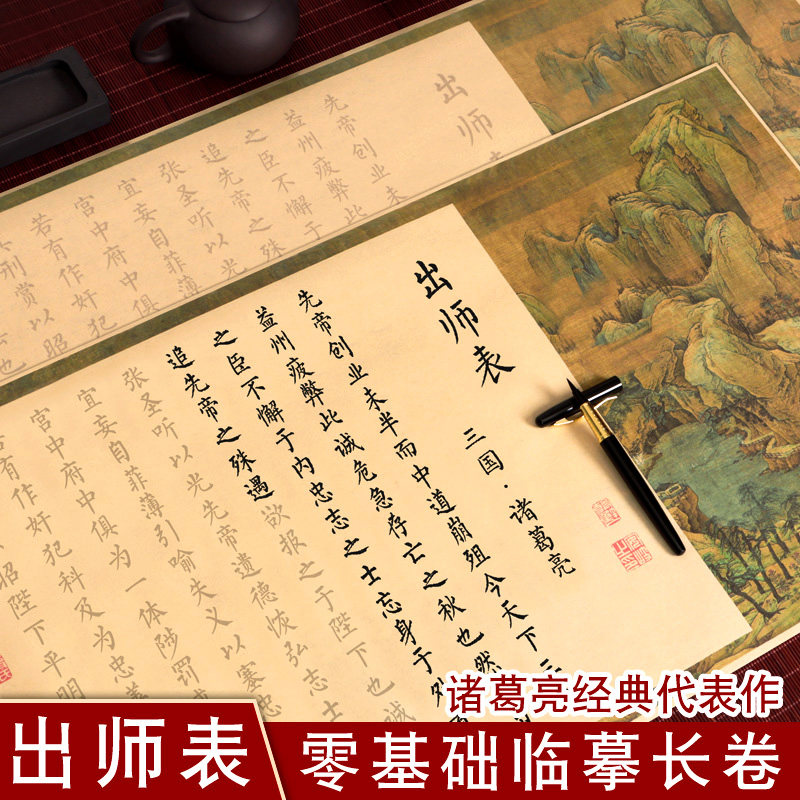 出师表
先帝创业未
益州疲弊此
之臣不懈于
追先帝之殊
张圣听以光
宜妄自菲薄
宫中府中俱
若有作奸犯
刑赏以昭
也
出师表
三国·诸葛亮
先帝创业未半而中道崩殂今天下三
益州疲弊此诚危急存亡之秋也然
之臣不懈于内忠志之士忘身于外
追先帝之殊遇欲报之于陛下也诚
张圣听以光先帝遗德恢弘志士
宜妄自菲薄引喻失义以塞忠
宫中府中俱为一体陟罚
有作奸犯科及为忠善
昭陛下平明
诸葛亮经典代表作
出师表
零基础临摹长卷